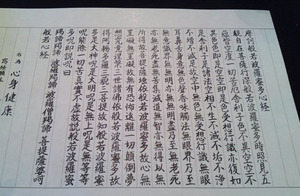 摩訶般若波羅蜜多心経
観自在菩薩行深般若波羅蜜多時照見五
蘊皆空度一切苦厄舎利子色不異空空不
異色色即是空空即是色受想行識亦復如
是舎利子是諸法空相不生不滅不垢不浄
不増不減是故空中無色無受想行識無眼
耳鼻舌身意無色声香味触法無眼界乃至
無意識界無無明亦無無明尽乃至無老死
亦無老死尽無苦集滅道無智亦無得以無
所得故菩提薩埵依般若波羅蜜多故心無
罣礙無罣礙故無有恐怖遠離一切顛倒夢
想究竟涅槃三世諸仏依般若波羅蜜多故
得阿耨多羅三藐三菩提故知般若波羅蜜
多是大神呪是大明呪是無上呪是無等等
呪能除一切苦真実不虚故説般若波羅蜜
多呪即説呪曰
羯諦羯諦 波羅羯諦 波羅僧羯諦 菩提薩婆
般若心経
為 心身健康